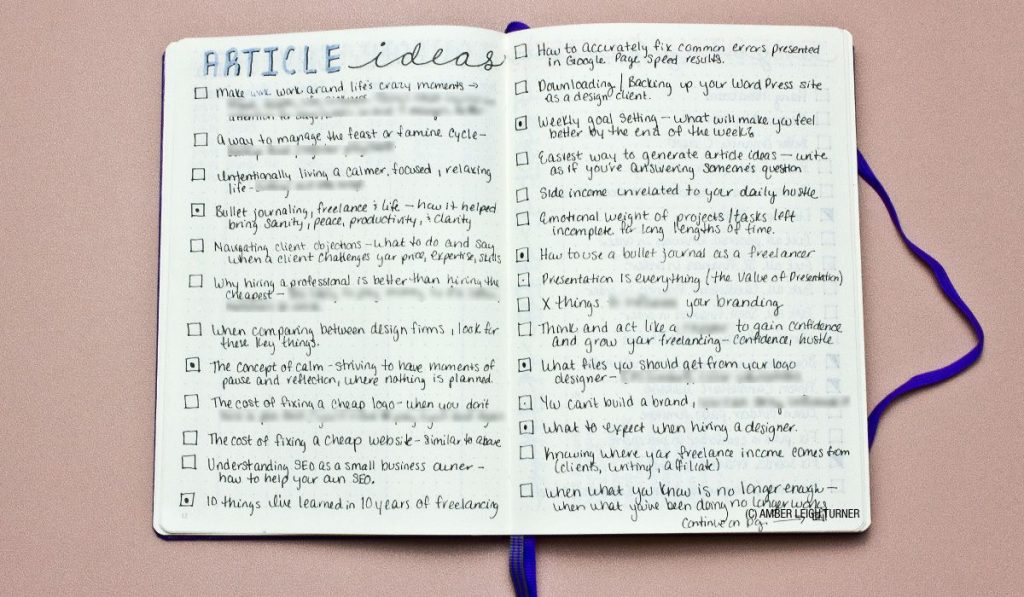 ARTICLE ideas
Make work around life's crazy moments →
attention to
A way to manage the feast or famine cycle—
Intentionally living a calmer, focused, relaxing
life-
Bullet journaling, freelance & life — how it helped
bring sanity, peace, productivity, & clarity
Navigating client objections — what to do and say
when a client challenges your price, expertise, skills
Why hiring a professional is better than hiring the
cheapest —
When comparing between design firms, look for
these key things.
The concept of calm — striving to have moments of
pause and reflection, where nothing is planned.
The cost of fixing a cheap logo — when you don't
The cost of fixing a cheap website — similar to above
Understanding SEO as a small business owner —
how to help your own SEO.
10 things I've learned in 10 years of freelancing
How to accurately fix common errors presented
in Google Page Speed results.
Downloading / Backing up your WordPress site
as a design client.
Weekly goal setting — what will make you feel
better by the end of the week?
Easiest way to generate article ideas — write
as if you're answering someone's question
Side income unrelated to your daily hustle
Emotional weight of projects/tasks left
incomplete for long lengths of time.
How to use a bullet journal as a freelancer
Presentation is everything (the value of presentation)
X things your branding
Think and act like a to gain confidence
and grow your freelancing — confidence, hustle
What files you should get from your logo
designer —
You can't build a brand,
What to expect when hiring a designer.
Knowing where your freelance income comes from
(clients, writing, affiliate)
When what you know is no longer enough —
when what you've been doing no longer works
Continue on pg. →
(C) AMBER LEIGH TURNER